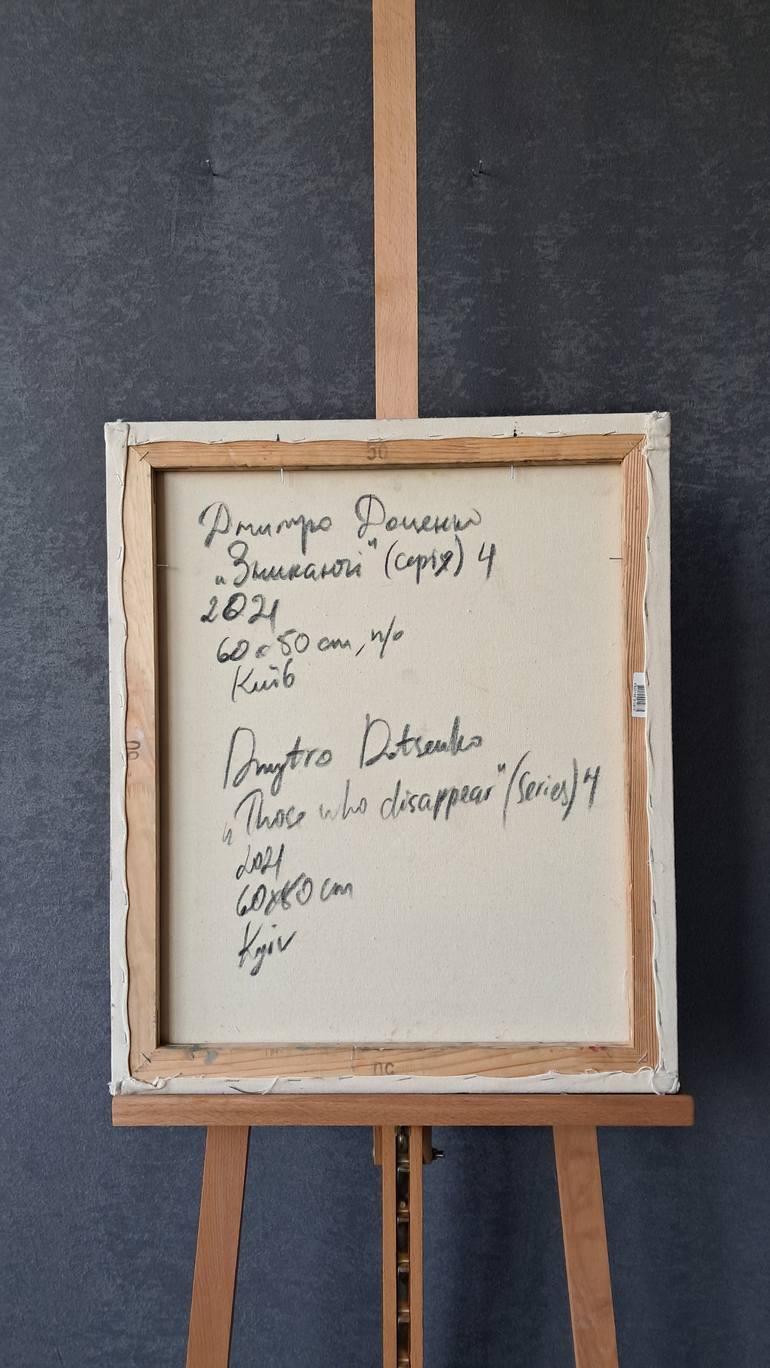 50
Дмитро Доценко
„Зникаючі” (серія) 4
2021
60x50 cm, п/о
Київ
Dmytro Dotsenko
„Those who disappear” (series) 4
2021
60x50 cm
Kyiv